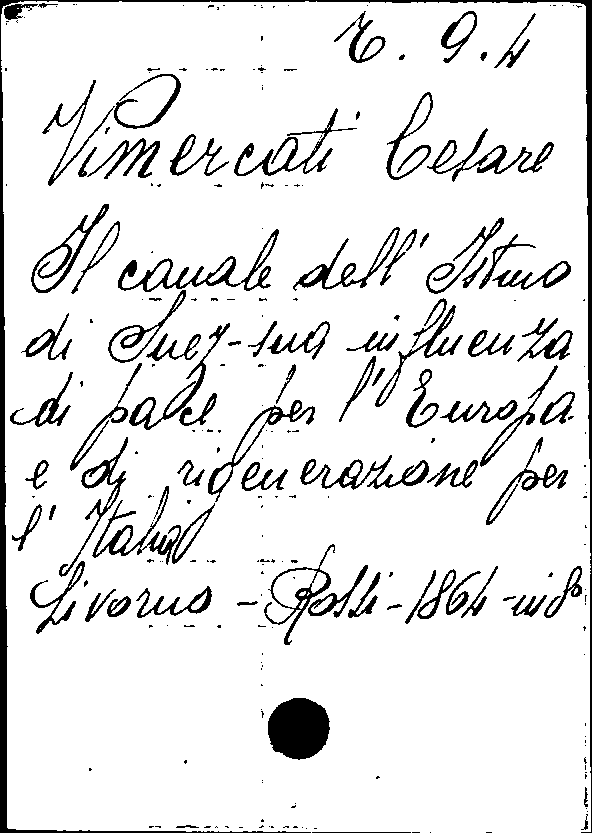 7. 9. 4
Vimercati Cesare
Il canale dell' Istmo
di Suez-sua influenza
di pace per l' Europa
e di rigenerazione per
l' Italia
Livorno - Rossi - 1864 - in 8°